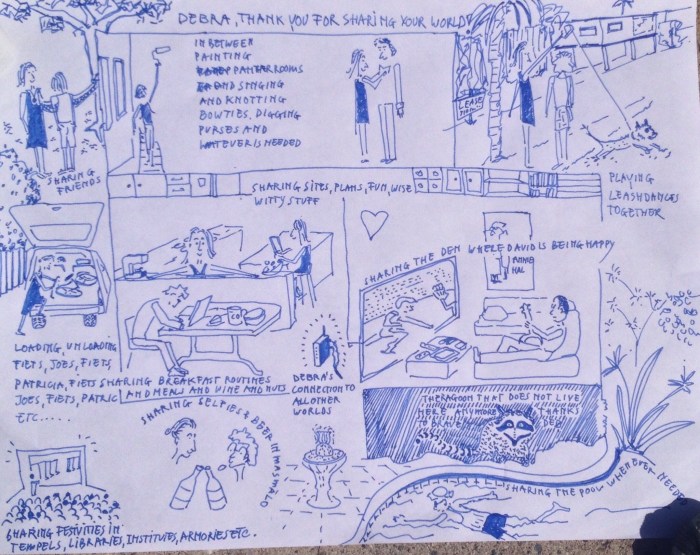 DEBRA, THANK YOU FOR SHARING YOUR WORLD
IN BETWEEN
PAINTING
ROOMS
AND SINGING
AND KNOTTING
BOWTIES, DIGGING
PURSES AND
WATEVER IS NEEDED
SHARING
FRIENDS
LEASH
SHARING SITES, PLANS, FUN, WISE
WITTY STUFF
PLAYING
LEASHDANCES
TOGETHER
SHARING THE DEN WHERE DAVID IS BEING HAPPY
ANNIE
HAL
LOADING, UNLOADING
FIETS, JOES, FIETS
PATRICIA, FIETS
JOES, FIETS, PATRIC
ETC.....
SHARING BREAKFAST ROUTINES
AND MEALS AND WINE AND NUTS
DEBRA'S
CONNECTION TO
ALL OTHER
WORLDS
THE RACOON THAT DOES NOT LIVE
HERE ANYMORE THANKS
TO BRAVE DEB
SHARING SELFIES & BEER IN
SHARING THE POOL WHENEVER NEEDED
SHARING FESTIVITIES IN
TEMPELS, LIBRARIES, INSTITUTES, ARMORIES ETC.